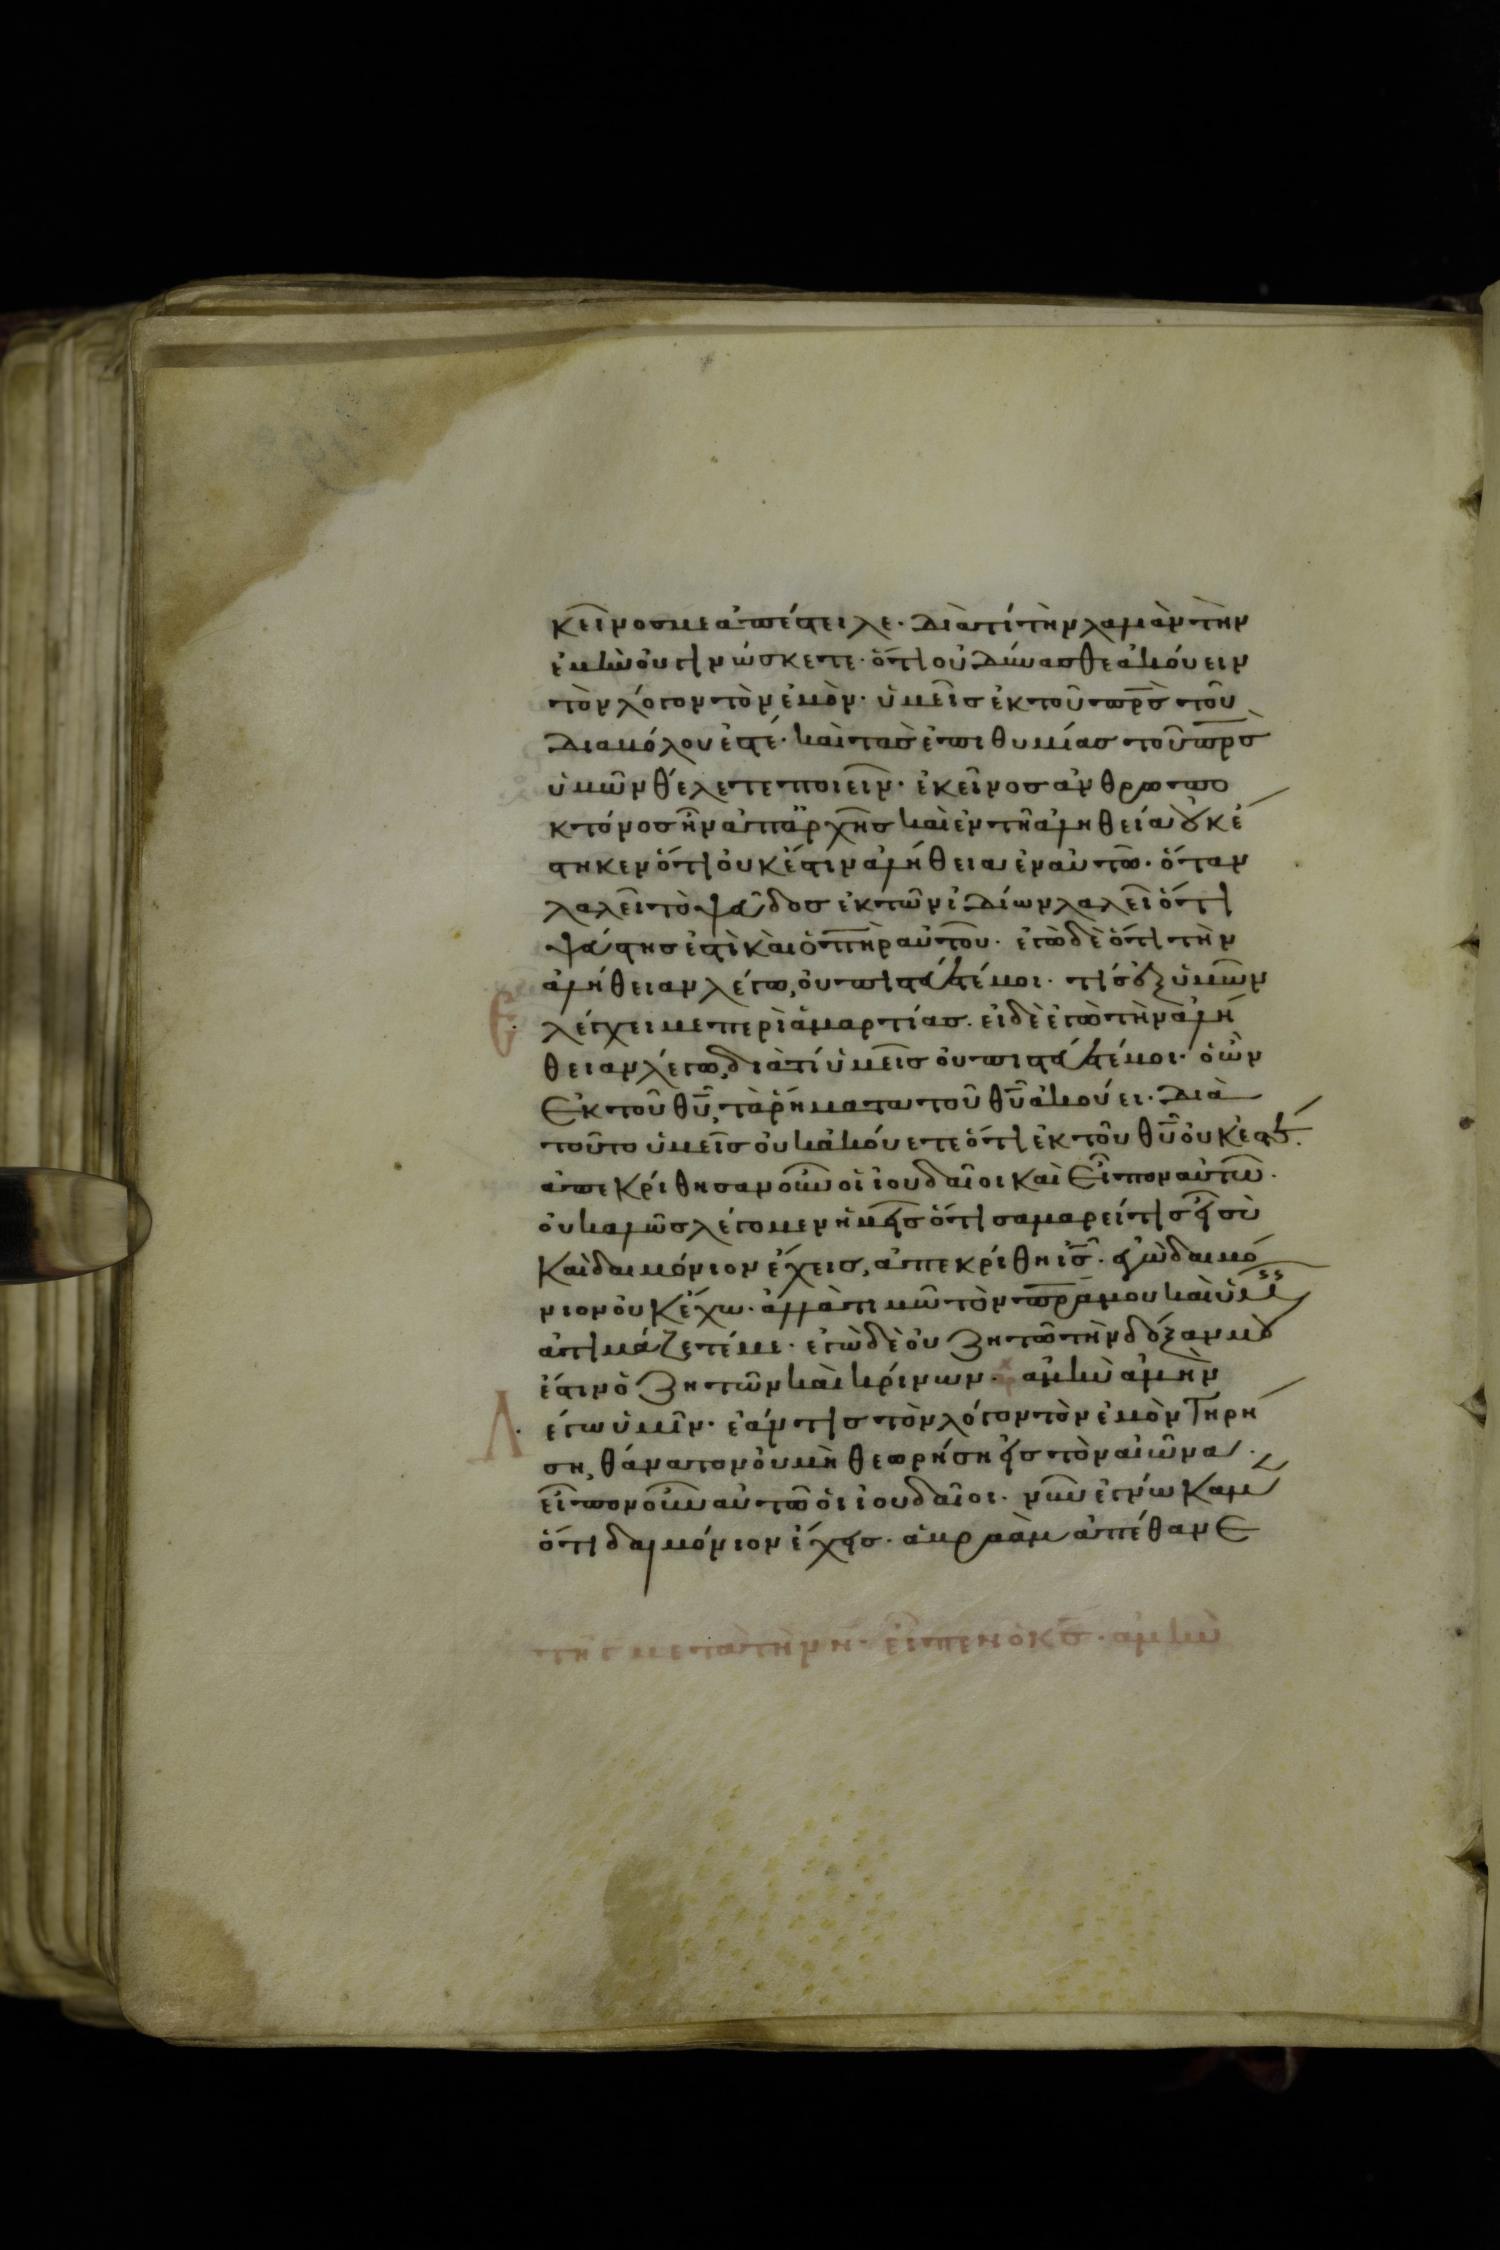 κεῖνος με ἀπέστειλε· διατί τὴν λαλιὰν τὴν
ἐμὴν οὐ γινώσκετε· ὅτι οὐ δύνασθε ἀκούειν
τὸν λόγον τὸν ἐμόν· ὑμεῖς ἐκ τοῦ πρ̅ς̅ τοῦ
διαβόλου ἐστέ· καὶ τὰς ἐπιθυμίας τοῦ πρ̅ς̅
ὑμῶν θέλετε ποιεῖν· ἐκεῖνος ἀνθρωπο
κτόνος ἦν ἀπ' ἀρχῆς καὶ ἐν τῇ ἀληθεία οὐκ ἕ
στηκεν ὅτι οὐκ ἔστιν ἀλήθεια ἐν αὐτῶ· ὅταν
λαλεῖ τὸ ψεῦδος ἐκ τῶν ἰδίων λαλεῖ ὅτι
ψεύστης ἐστὶ καὶ ὁ π̅η̅ρ̅ αὐτοῦ· ἐγὼ δὲ ὅτι τὴν
ἀλήθειαν λέγω, οὐ πιστεύετέ μοι· τίς ἐξ ὑμῶν
Ἐ
λέγχει με περὶ ἁμαρτίας· εἰ δὲ ἐγὼ τὴν ἀλή
θειαν λέγω, διατί ὑμεῖς οὐ πιστεύετέ μοι· ὁ ὢν
ἐκ τοῦ θ̅υ̅, τὰ ῥήματα τοῦ θ̅υ̅ ἀκούει· διὰ
τοῦτο ὑμεῖς οὐκ ἀκούετε ὅτι ἐκ τοῦ θ̅υ̅ οὐκ ἐστέ.
ἀπεκρίθησαν οὖν οἱ ἰουδαῖοι καὶ εἶπον αὐτῶ·
οὐ καλῶς λέγομεν ἡμεῖς ὅτι σαμαρείτις εἶ σὺ
καὶ δαιμόνιον ἔχεις, ἀπεκρίθη ι̅ς̅· ἐγὼ δαιμό
νιον οὐκ ἔχω· ἀλλὰ τιμῶ τὸν π̅ρ̅α̅ μου καὶ ὑμεῖς
ἀτιμάζετέ με· ἐγὼ δὲ οὐ ζητῶ τὴν δόξαν μου
ἔστιν ὁ ζητῶν καὶ κρίνων· ἀμὴν ἀμὴν
Λ
έγω ὑμῖν· ἐάν τις τὸν λόγον τὸν ἐμὸν τηρή
ση, θάνατον οὐ μὴ θεωρήση εἰς τὸν αἰῶνα·
εἶπον οὖν αὐτῶ οἱ ἰουδαῖοι· νῦν ἐγνώκαμεν
ὅτι δαιμόνιον ἔχεις· ἀβραὰμ ἀπέθανε
εἶπεν ὁ κ̅ς̅· ἀμὴν